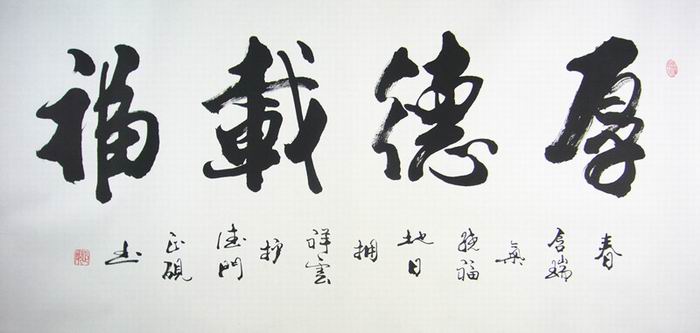 厚德載福
春含瑞氣繞福地日拥祥雲护德門硯书